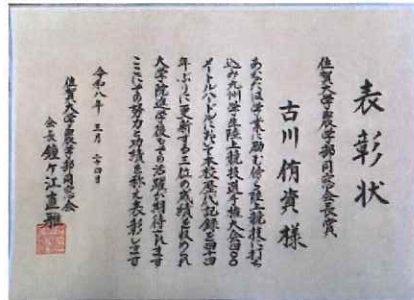 表彰状
佐賀大学農学部同窓会長賞
古川侑資様
あなたは学業に励む傍ら陸上競技に打ち
込み九州学生陸上競技選手権大会四〇〇
メートルハードルにおいて本校歴代記録を四十四
年ぶりに更新する三位の成績を収められ
大学院進学後もその活躍が期待されます
ここにその努力と功績を称え表彰します
令和八年三月二十四日
佐賀大学農学部同窓会
会長鐘ヶ江直雅